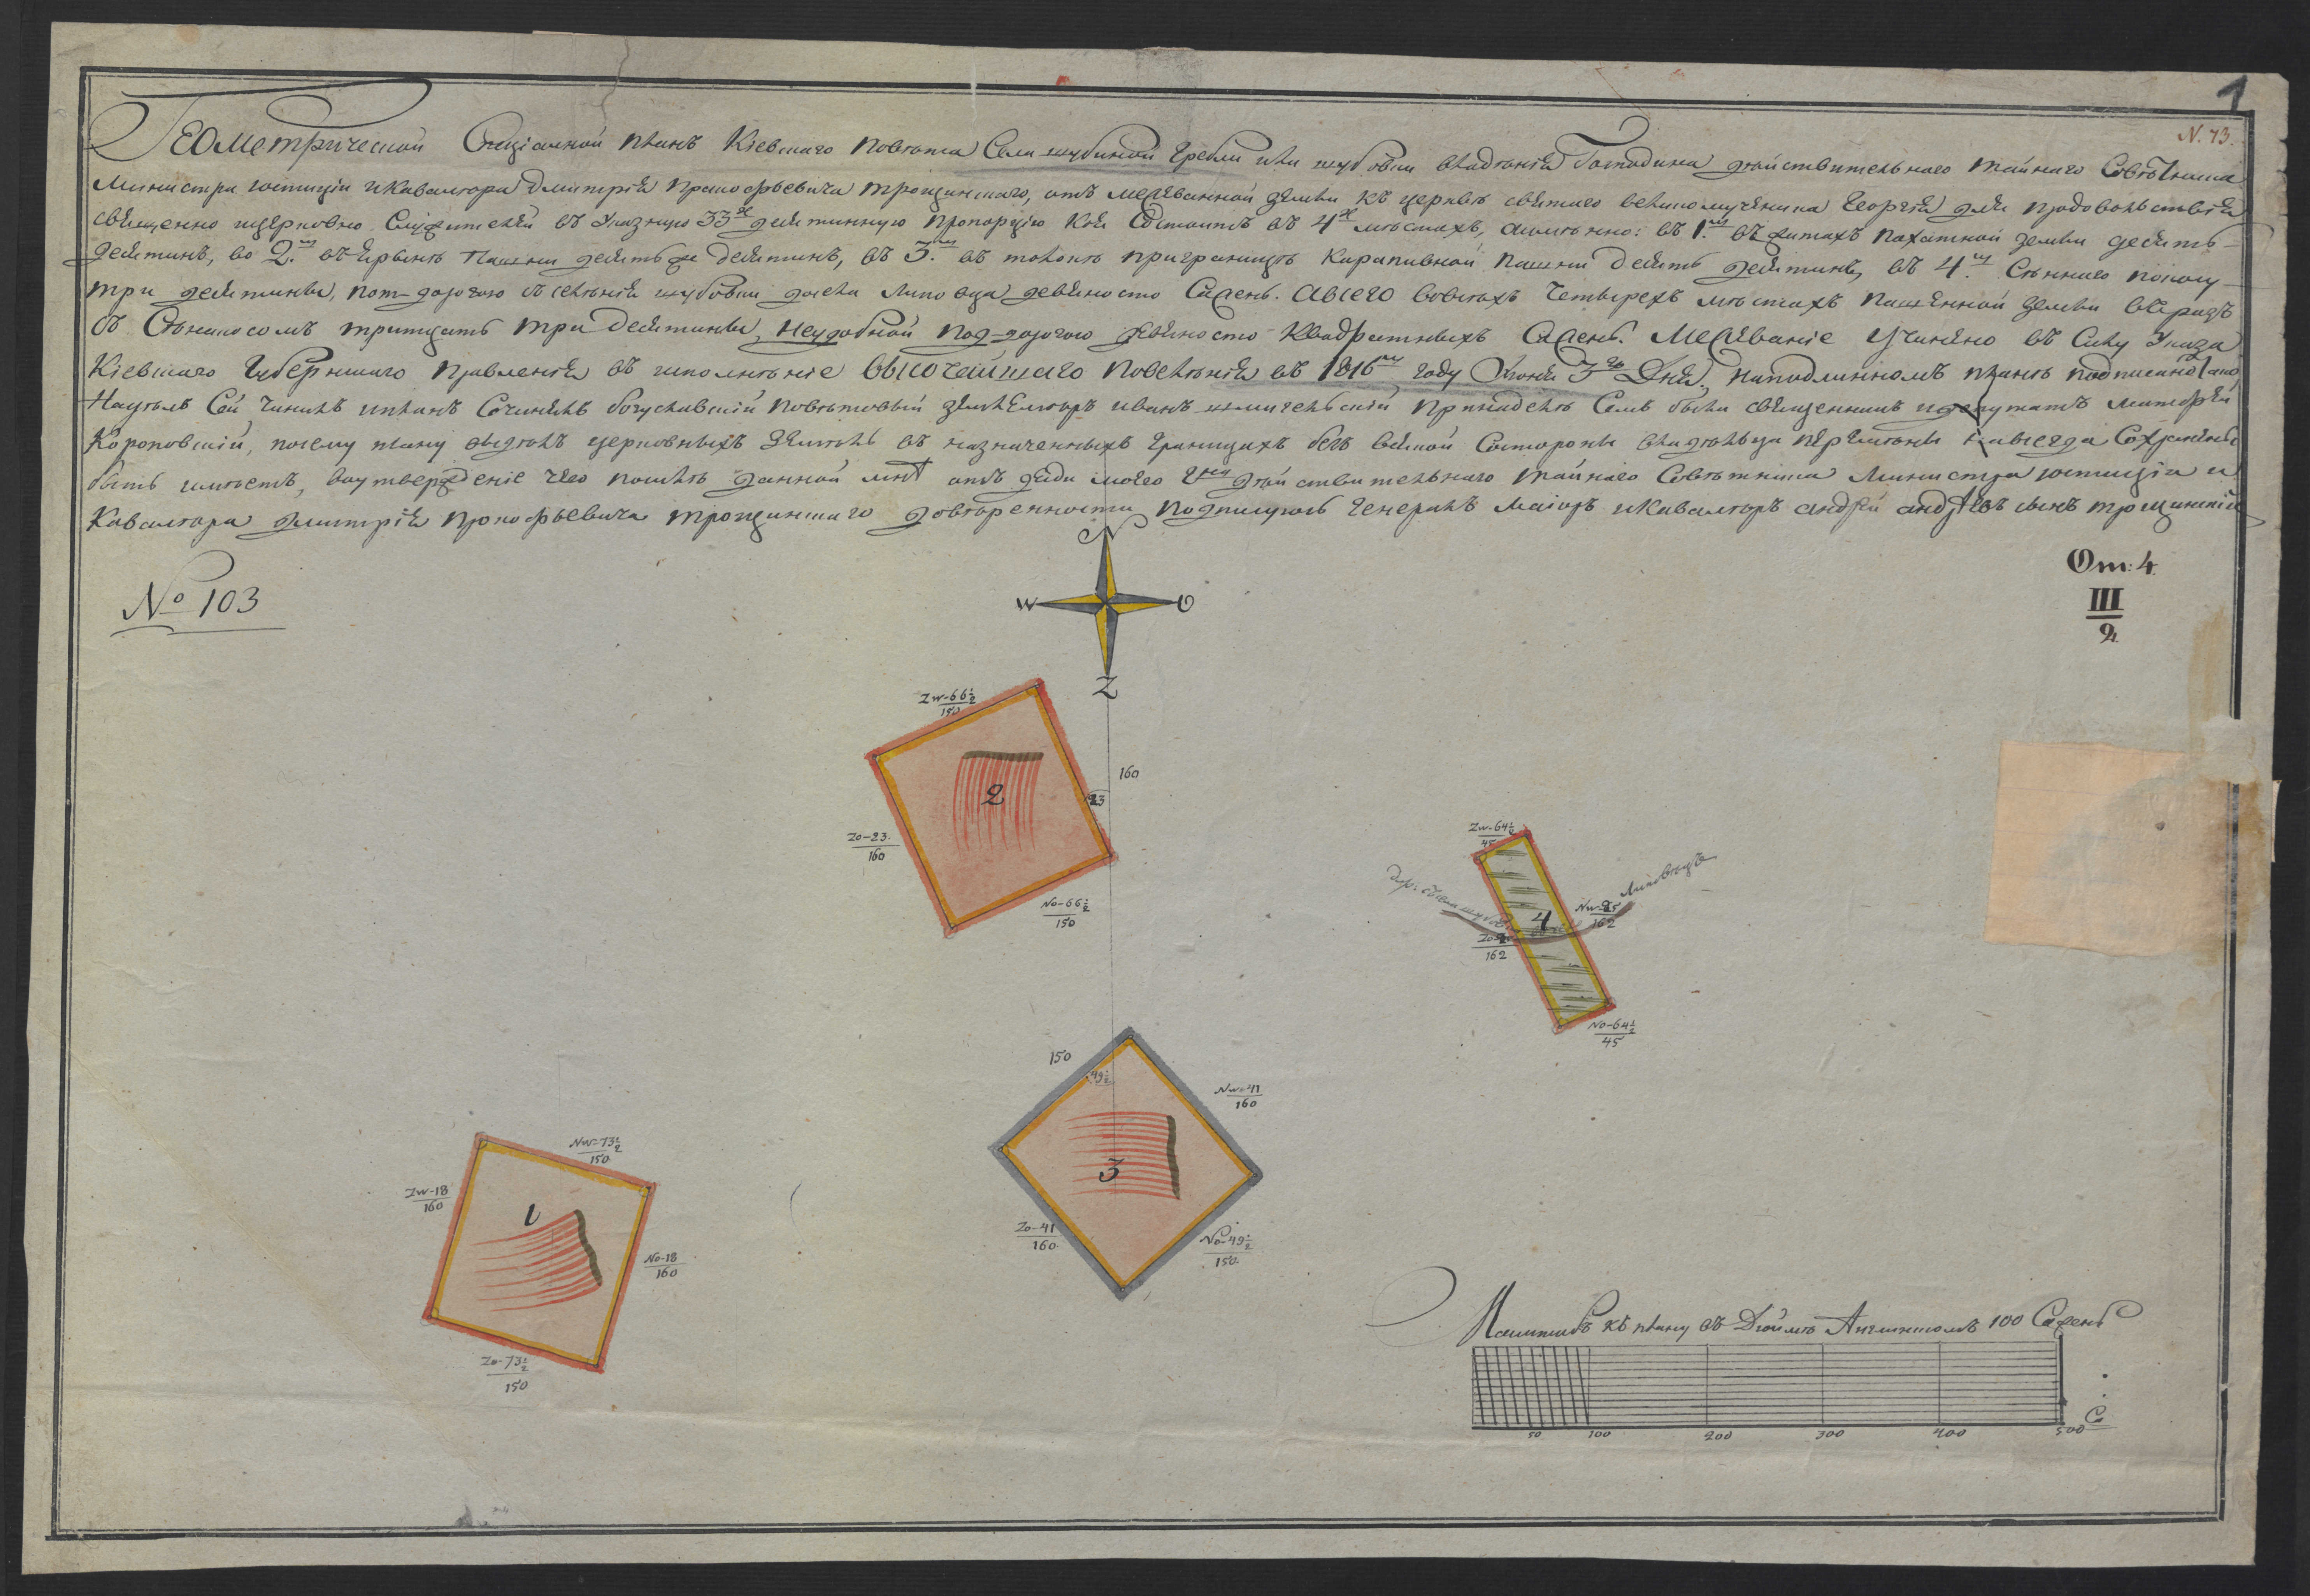 1
N. 73.
Геометрической Специальной планъ Кіевскаго повѣта Села шубиной Гребли или шубовки владѣнія Господина дѣйствительнаго тайнаго Совѣтника
Министра юстиціи и Кавалера Дмитрія Прокофьевича Трощинскаго, отъ межеванной земли къ церквѣ святаго великомученика Георгія для продовольствія
священно ицерковно Служителей въ Указную 33х десятинную пропорцію кои Состоитъ въ 4х мѣстахъ, аимѣнно: въ 1м въ пахатной земли десять
десятинъ, во 2м пашни десять десятинъ, въ 3м въ приграницѣ Карапивной пашни десять десятинъ, въ 4м Сѣннаго покосу
три десятины, пот дорогою Липовца девяносто Сажень. Авсего вовсѣхъ Четырехъ мѣстахъ пашенной земли
съ Сѣнокосомъ тритцать три десятины, неудобной под дорогою девяносто Квадратныхъ Сажень. Межеваніе Учинено въ Силу Указа
Кіевскаго Губернскаго Правленія въ исполненіе высочайшаго повелѣнія въ 1816м году Іюня 3го Дня. наподлинномъ планѣ подписано тако
Надѣлъ Сей Чинилъ ипланъ Сочинялъ богуславскій повѣтовый землемѣръ иванъ при надѣлѣ Семъ были священникъ идепутатъ Матфей
Короповскій, посему плану надѣлъ церковныхъ земель въ назначенныхъ границахъ безъ всякой Стороны владѣльца перемѣны навсегда Сохраненъ
быть имѣетъ, воутвержденіе чего помѣтъ данной мнѣ отъ дяди моего Гна дѣйствительнаго тайнаго Совѣтника Министра юстиціи и
Кавалера Дмитрія Прокофьевича Трощинскаго довѣренности подписуюсь Генералъ Маіоръ иКавалеръ андрей андреевъ сынъ трощинскій
№ 103
От: 4.
III
2.
N
W O
Z
Zw-66½
150
2
160
23
Zo-23.
160
No-66½
150
Zw-64½
45
Липовецъ
4
Nw-25
162
Zo-
162
No-64½
45
150
49½
Nw-41
160
3
Zo-41
160
No-49½
150
Nw-73½
150
Zw-18
160
1
No-18
160
Zo-73½
150
Масштабъ къ плану въ Дюймѣ Англинскомъ 100 Сажень
50 100 200 300 400 500 С